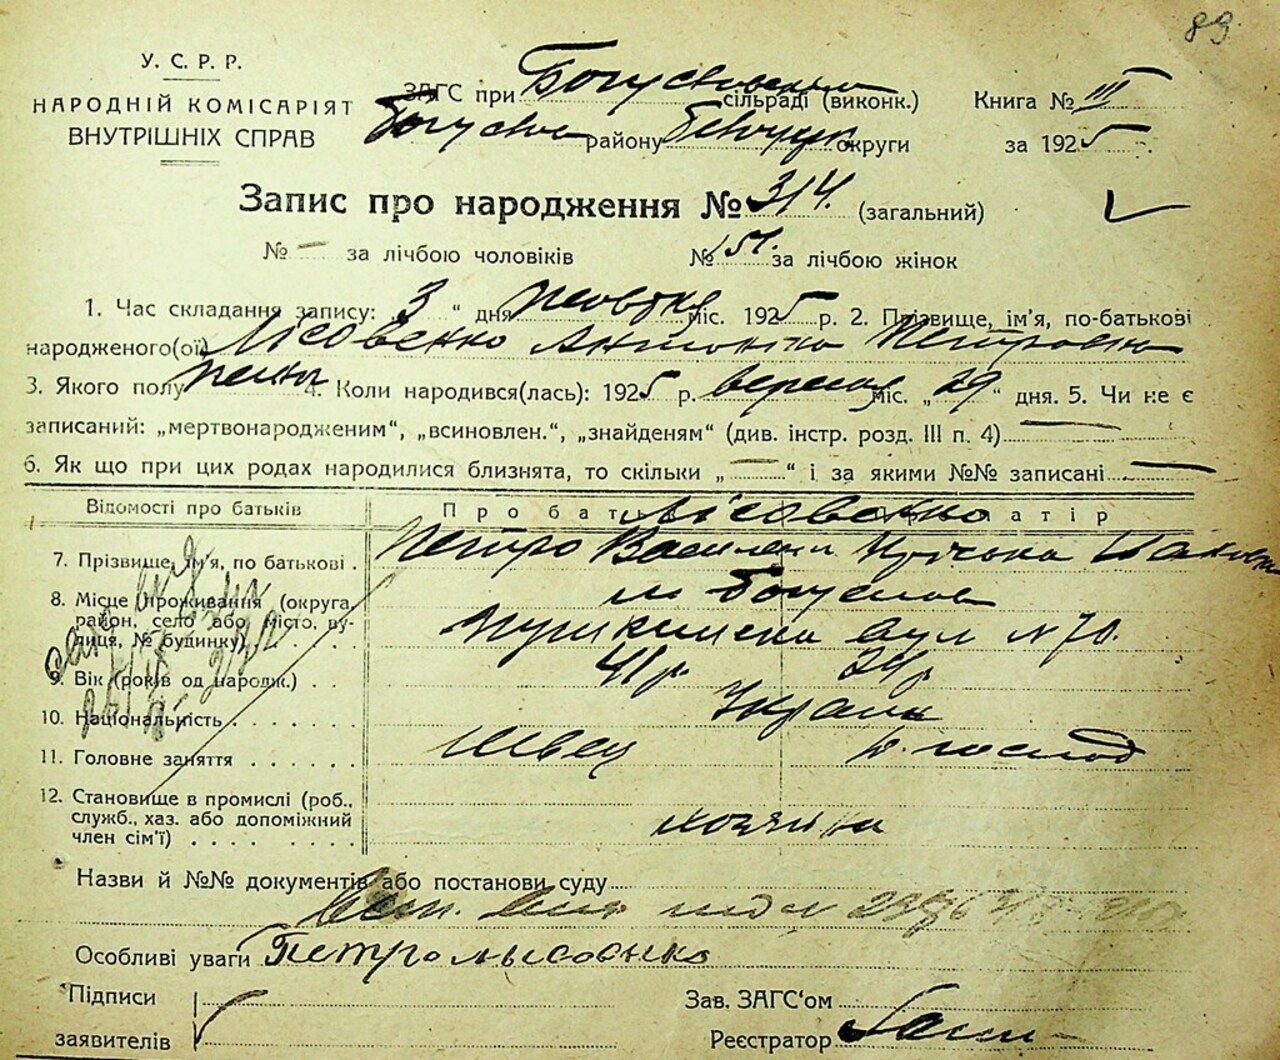 89
У. С. Р. Р.
НАРОДНІЙ КОМІСАРІЯТ
ВНУТРІШНІХ СПРАВ
ЗАГС при сільраді (виконк.)
району округи
Книга № III
за 1925
Запис про народження № 314. (загальний)
№ — за лічбою чоловіків № 151. за лічбою жінок
1. Час складання запису: „ 3 “ дня жовтня міс. 1925 р. 2. Прізвище, ім'я, по-батькові
народженого(ої) Лісовенко Антоніна Петровна
3. Якого полу жіноч 4. Коли народився(лась): 1925 р. вересня міс. „ 29 “ дня. 5. Чи не є
записаний: „мертвонародженим“, „всиновлен.“, „знайденям“ (див. інстр. розд. III п. 4) —
6. Як що при цих родах народилися близнята, то скільки „ — “ і за якими №№ записані —
Відомості про батьків Про батька Про матір
Лісовенко
7. Прізвище, ім'я, по батькові . Петро Василєв
8. Місце проживання (округа, район, село або місто, вулиця, № будинку) . . . . м Богуслав
вул N 70.
9. Вік (років од народж.) . . 41 р. 24 р
10. Національність . . . . . . Україн
11. Головне заняття . . . . . . швец д. господ
12. Становище в промислі (роб.,
служб., хаз. або допоміжний
член сім'ї) . . . . . . . . хозяїн
Назви й №№ документів або постанови суду
Особливі уваги Петро Лысовенко
Підписи
заявителів
Зав. ЗАГС'ом
Реєстратор